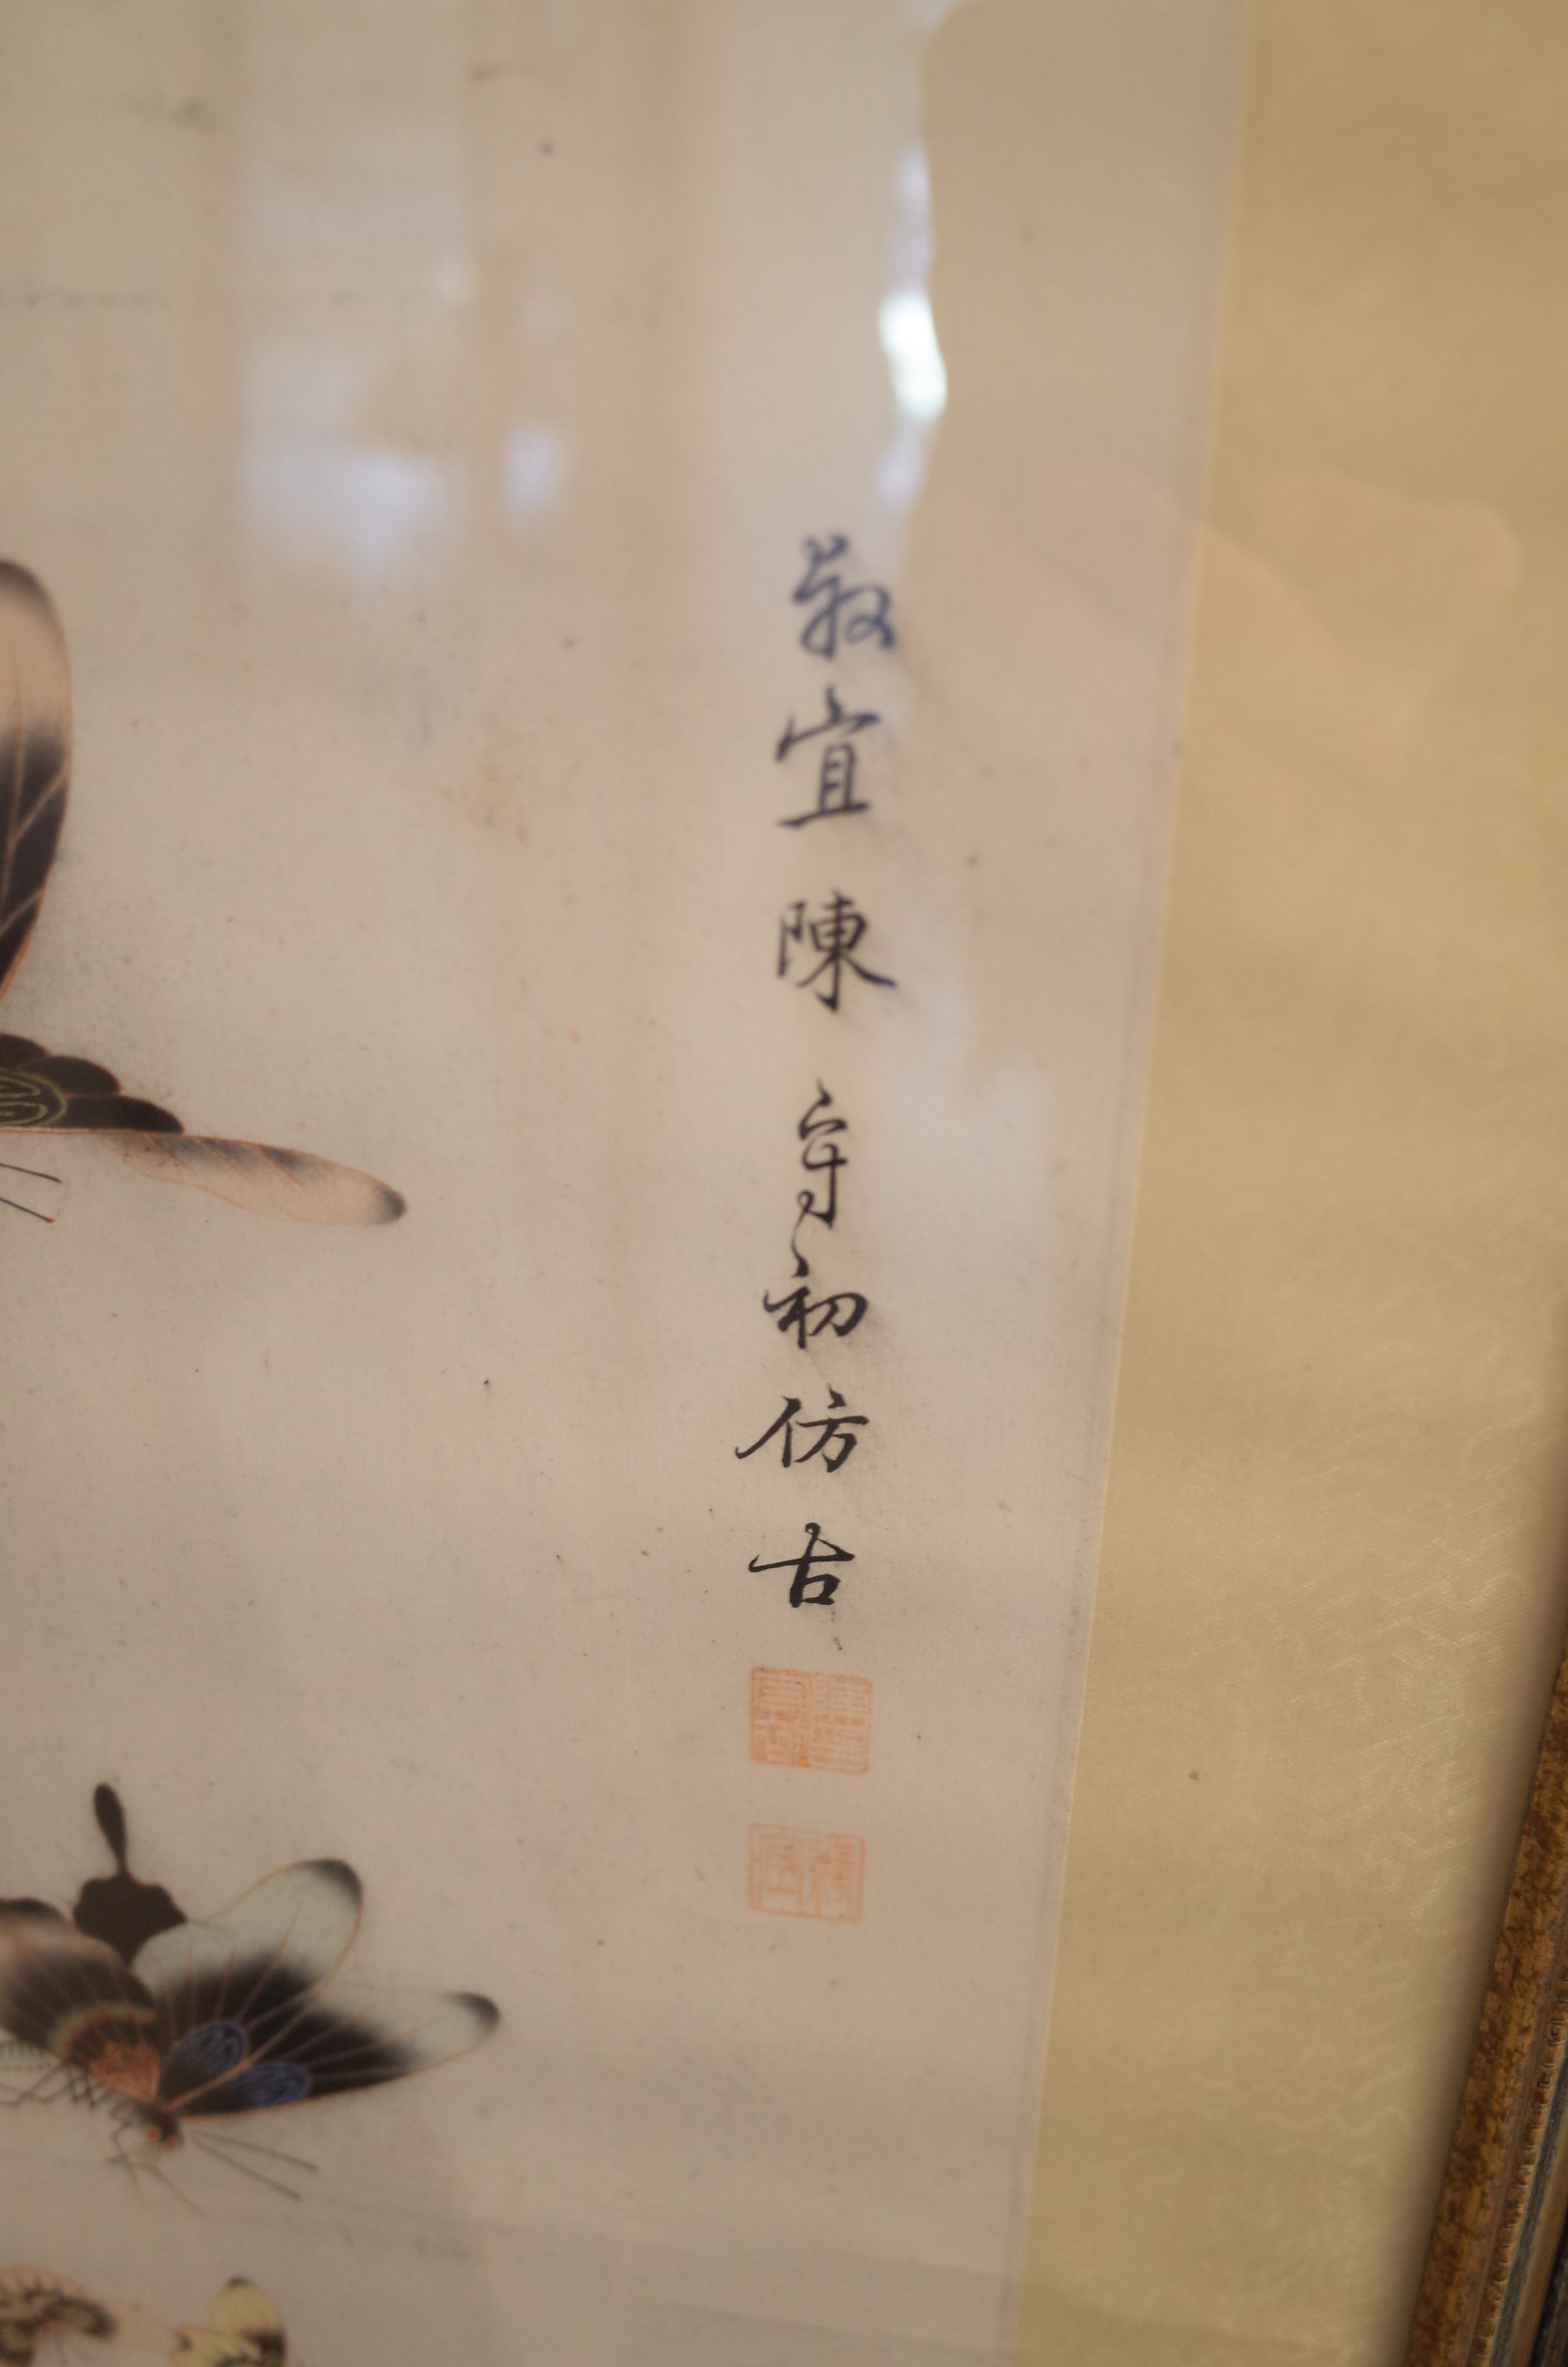 敬宜陳守初仿古